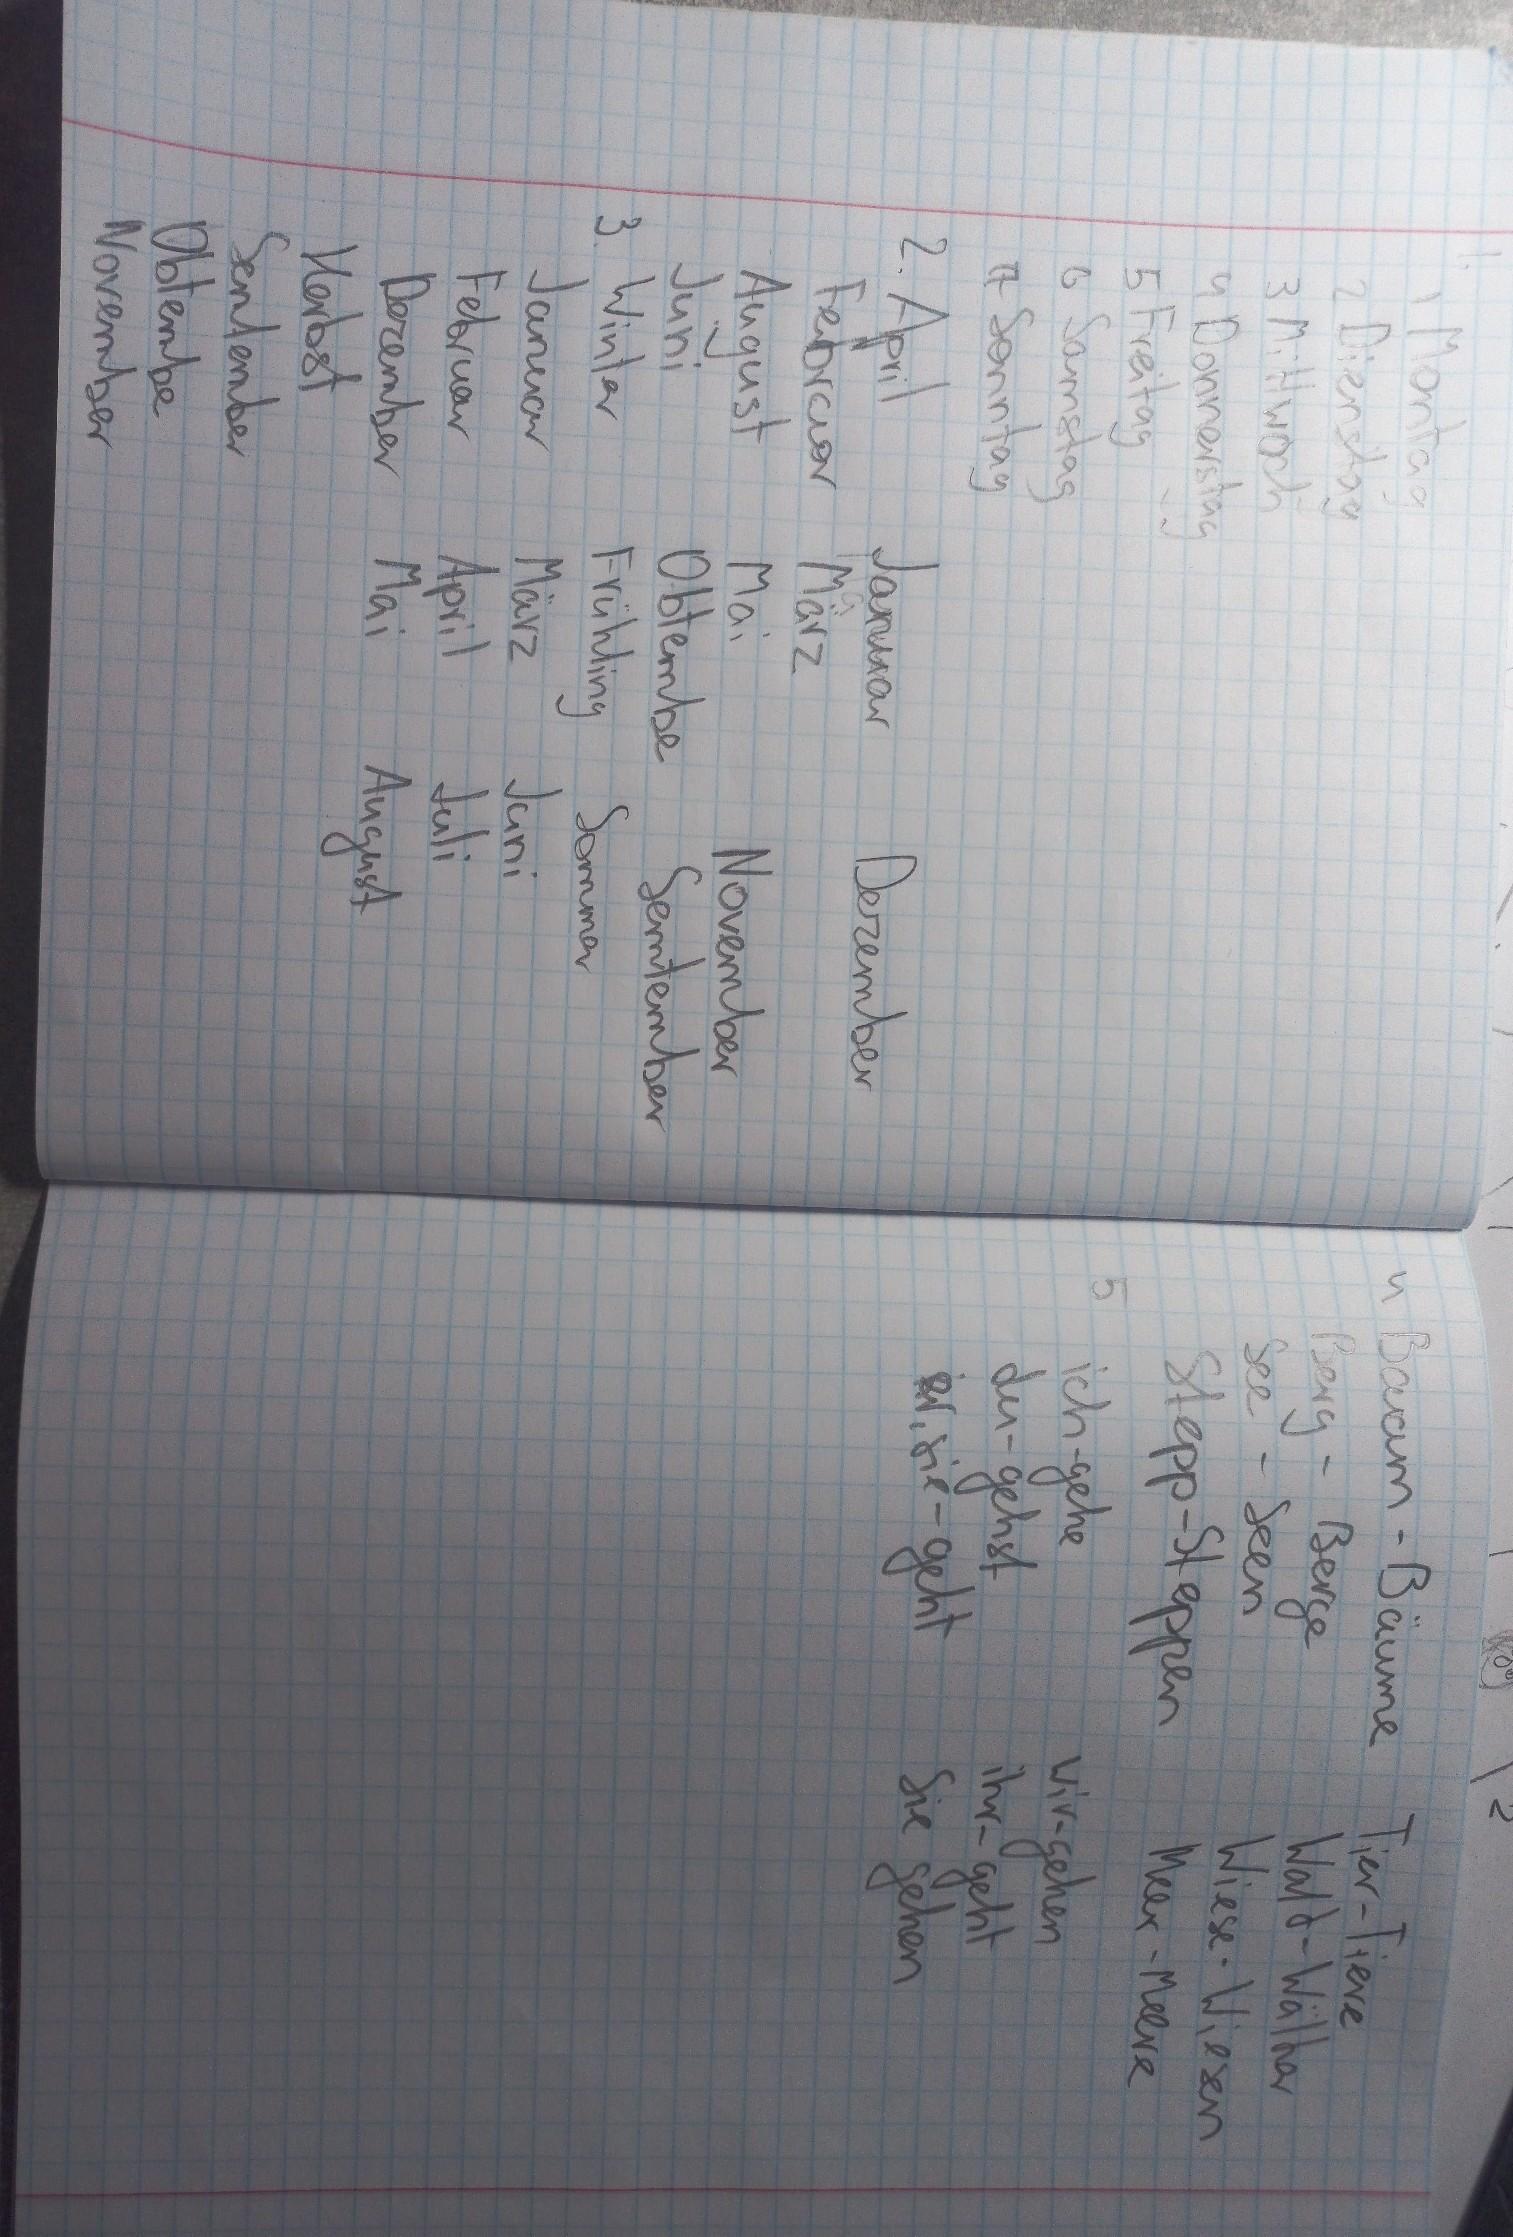 1.
1 Montag
2 Dienstag
3 Mittwoch
4 Donnerstag
5 Freitag
6 Samstag
7 Sonntag
2. April Januar Derzember
Februar März
August Mai November
Juni Obtembe Semtember
3. Winter Frühling Sommer
Januar März Juni
Februar April Juli
Dezember Mai August
Herbst
Semtember
Obtembe
November
4 Baum - Bäume Tier - Tiere
Berg - Berge Wald - Wälther
See - Seen Wiese - Wiesen
Stepp - Steppen Meer - Meere
5
ich - gehe wir - gehen
du - gehst ihr - geht
er, sie - geht Sie gehen
2